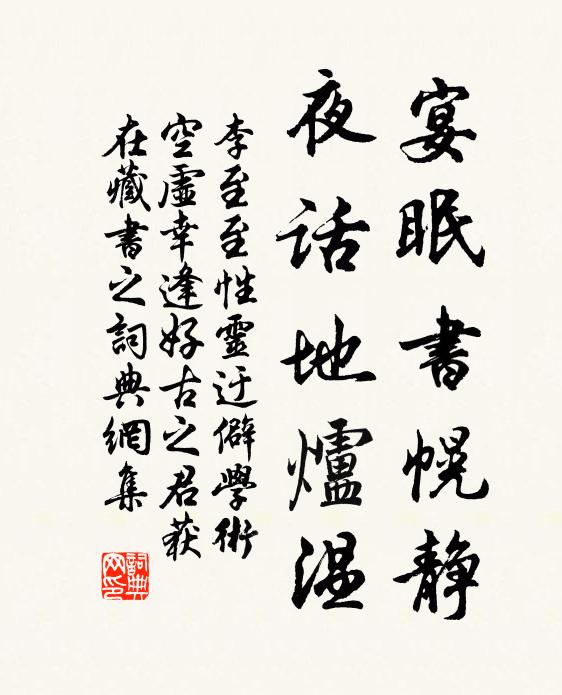 宴眠書幌静
夜话地爐温
李至至性靈迂僻學術
空虛幸逢好古之君获
在藏書之詞典網集
詞典网印